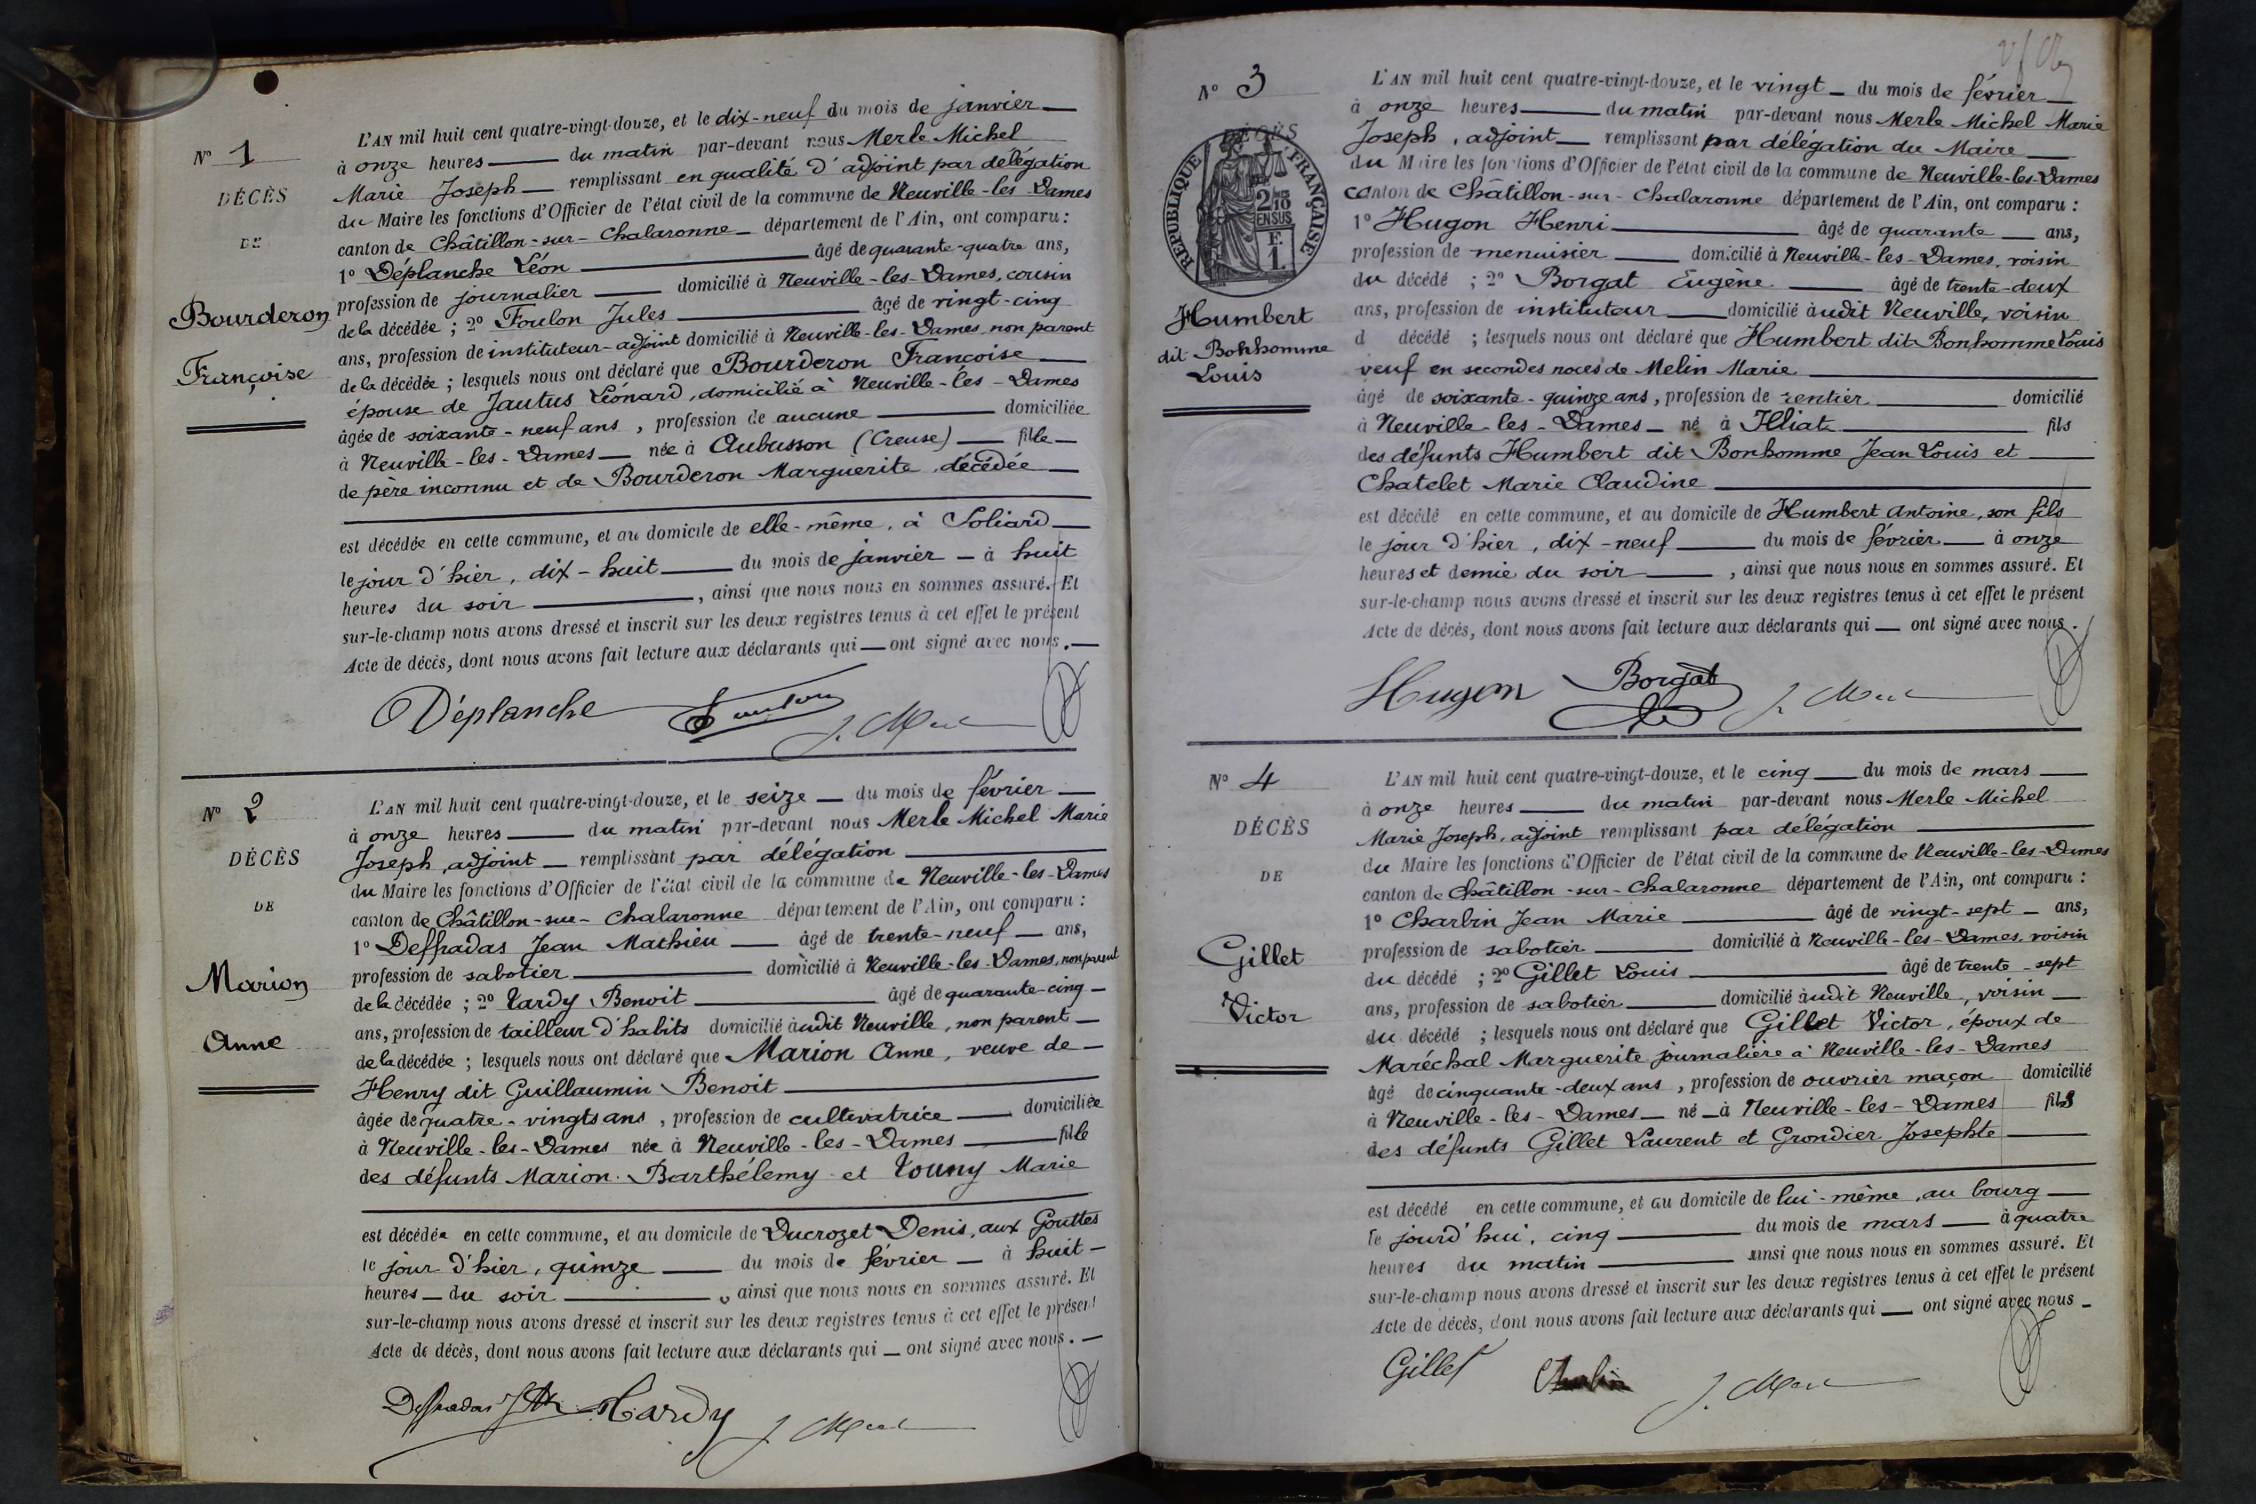 N° 1
DÉCÈS
DE
Bourderon
Françoise
L'AN mil huit cent quatre-vingt-douze, et le dix-neuf du mois de janvier
à onze heures du matin par-devant nous Merle Michel
Marie Joseph remplissant en qualité d'adjoint par délégation
du Maire les fonctions d'Officier de l'état civil de la commune de Neuville-les-Dames
canton de Châtillon-sur-Chalaronne département de l'Ain, ont comparu :
1° Déplanche Léon âgé de quarante-quatre ans,
profession de journalier domicilié à Neuville-les-Dames, cousin
de la décédée ; 2° Foulon Jules âgé de vingt-cinq
ans, profession de instituteur-adjoint domicilié à Neuville-les-Dames, non parent
de la décédée ; lesquels nous ont déclaré que Bourderon Françoise
épouse de Jautus Léonard, domicilié à Neuville-les-Dames
âgée de soixante-neuf ans, profession de aucune domiciliée
à Neuville-les-Dames née à Aubusson (Creuse) fille
de père inconnu et de Bourderon Marguerite, décédée
est décédée en cette commune, et au domicile de elle-même, à Soliard
le jour d'hier, dix-huit du mois de janvier à huit
heures du soir, ainsi que nous nous en sommes assuré. Et
sur-le-champ nous avons dressé et inscrit sur les deux registres tenus à cet effet le présent
Acte de décès, dont nous avons fait lecture aux déclarants qui ont signé avec nous.
Déplanche Foulon J. Merle
N° 2
DÉCÈS
DE
Marion
Anne
L'AN mil huit cent quatre-vingt-douze, et le seize du mois de février
à onze heures du matin par-devant nous Merle Michel Marie
Joseph, adjoint remplissant par délégation
du Maire les fonctions d'Officier de l'état civil de la commune de Neuville-les-Dames
canton de Châtillon-sur-Chalaronne département de l'Ain, ont comparu :
1° Deffradas Jean Mathieu âgé de trente-neuf ans,
profession de sabotier domicilié à Neuville-les-Dames, non parent
de la décédée ; 2° Tardy Benoit âgé de quarante-cinq
ans, profession de tailleur d'habits domicilié audit Neuville, non parent
de la décédée ; lesquels nous ont déclaré que Marion Anne, veuve de
Henry dit Guillaumin Benoit
âgée de quatre-vingts ans, profession de cultivatrice domiciliée
à Neuville-les-Dames née à Neuville-les-Dames fille
des défunts Marion Barthélemy et Touny Marie
est décédée en cette commune, et au domicile de Ducrozet Denis, aux Gouttes
le jour d'hier, quinze du mois de février à huit
heures du soir, ainsi que nous nous en sommes assuré. Et
sur-le-champ nous avons dressé et inscrit sur les deux registres tenus à cet effet le présent
Acte de décès, dont nous avons fait lecture aux déclarants qui ont signé avec nous.
Deffradas Tardy J. Merle
N° 3
DÉCÈS
RÉPUBLIQUE FRANÇAISE
2/10
EN SUS
F.
1.
Humbert
dit Bonhomme
Louis
L'AN mil huit cent quatre-vingt-douze, et le vingt du mois de février
à onze heures du matin par-devant nous Merle Michel Marie
Joseph, adjoint remplissant par délégation du Maire
du Maire les fonctions d'Officier de l'état civil de la commune de Neuville-les-Dames
canton de Châtillon-sur-Chalaronne département de l'Ain, ont comparu :
1° Hugon Henri âgé de quarante ans,
profession de menuisier domicilié à Neuville-les-Dames, voisin
du décédé ; 2° Borgat Eugène âgé de trente-deux
ans, profession de instituteur domicilié audit Neuville, voisin
d décédé ; lesquels nous ont déclaré que Humbert dit Bonhomme Louis
veuf en secondes noces de Melin Marie
âgé de soixante-quinze ans, profession de rentier domicilié
à Neuville-les-Dames né à Illiat fils
des défunts Humbert dit Bonhomme Jean Louis et
Chatelet Marie Claudine
est décédé en cette commune, et au domicile de Humbert Antoine, son fils
le jour d'hier, dix-neuf du mois de février à onze
heures et demie du soir, ainsi que nous nous en sommes assuré. Et
sur-le-champ nous avons dressé et inscrit sur les deux registres tenus à cet effet le présent
Acte de décès, dont nous avons fait lecture aux déclarants qui ont signé avec nous.
Hugon Borgat J. Merle
N° 4
DÉCÈS
DE
Gillet
Victor
L'AN mil huit cent quatre-vingt-douze, et le cinq du mois de mars
à onze heures du matin par-devant nous Merle Michel
Marie Joseph, adjoint remplissant par délégation
du Maire les fonctions d'Officier de l'état civil de la commune de Neuville-les-Dames
canton de Châtillon-sur-Chalaronne département de l'Ain, ont comparu :
1° Charbin Jean Marie âgé de vingt-sept ans,
profession de sabotier domicilié à Neuville-les-Dames, voisin
du décédé ; 2° Gillet Louis âgé de trente-sept
ans, profession de sabotier domicilié audit Neuville, voisin
du décédé ; lesquels nous ont déclaré que Gillet Victor, époux de
Maréchal Marguerite journalière à Neuville-les-Dames
âgé de cinquante-deux ans, profession de ouvrier maçon domicilié
à Neuville-les-Dames né à Neuville-les-Dames fils
des défunts Gillet Laurent et Grondier Josephte
est décédé en cette commune, et au domicile de lui-même, au bourg
le jourd'hui, cinq du mois de mars à quatre
heures du matin ainsi que nous nous en sommes assuré. Et
sur-le-champ nous avons dressé et inscrit sur les deux registres tenus à cet effet le présent
Acte de décès, dont nous avons fait lecture aux déclarants qui ont signé avec nous
Gillet Charbin J. Merle